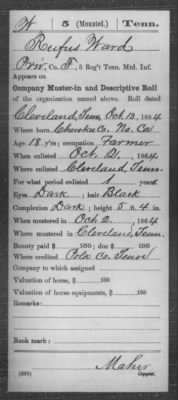 W | 5 (Mounted.) | Tenn.
Rufus Ward
Priv., Co. F, 5 Reg't Tenn. Mtd. Inf.
Appears on
Company Muster-in and Descriptive Roll
of the organization named above. Roll dated
Cleveland, Tenn, Oct. 12, 1864
Where born Cherokee Co. No. Ca
Age 18 y'rs; occupation Farmer
When enlisted Oct. 2, 1864
Where enlisted Cleveland, Tenn.
For what period enlisted 1 years
Eyes Dark; hair Black
Complexion Dark; height 5 ft. 4 in.
When mustered in Oct. 2, 1864
Where mustered in Cleveland, Tenn.
Bounty paid $ 100; due $ 100
Where credited Polk Co, Tenn
Company to which assigned
Valuation of horse, $ 100
Valuation of horse equipments, $ 100
Remarks:
Book mark:
Maher
Copyist.